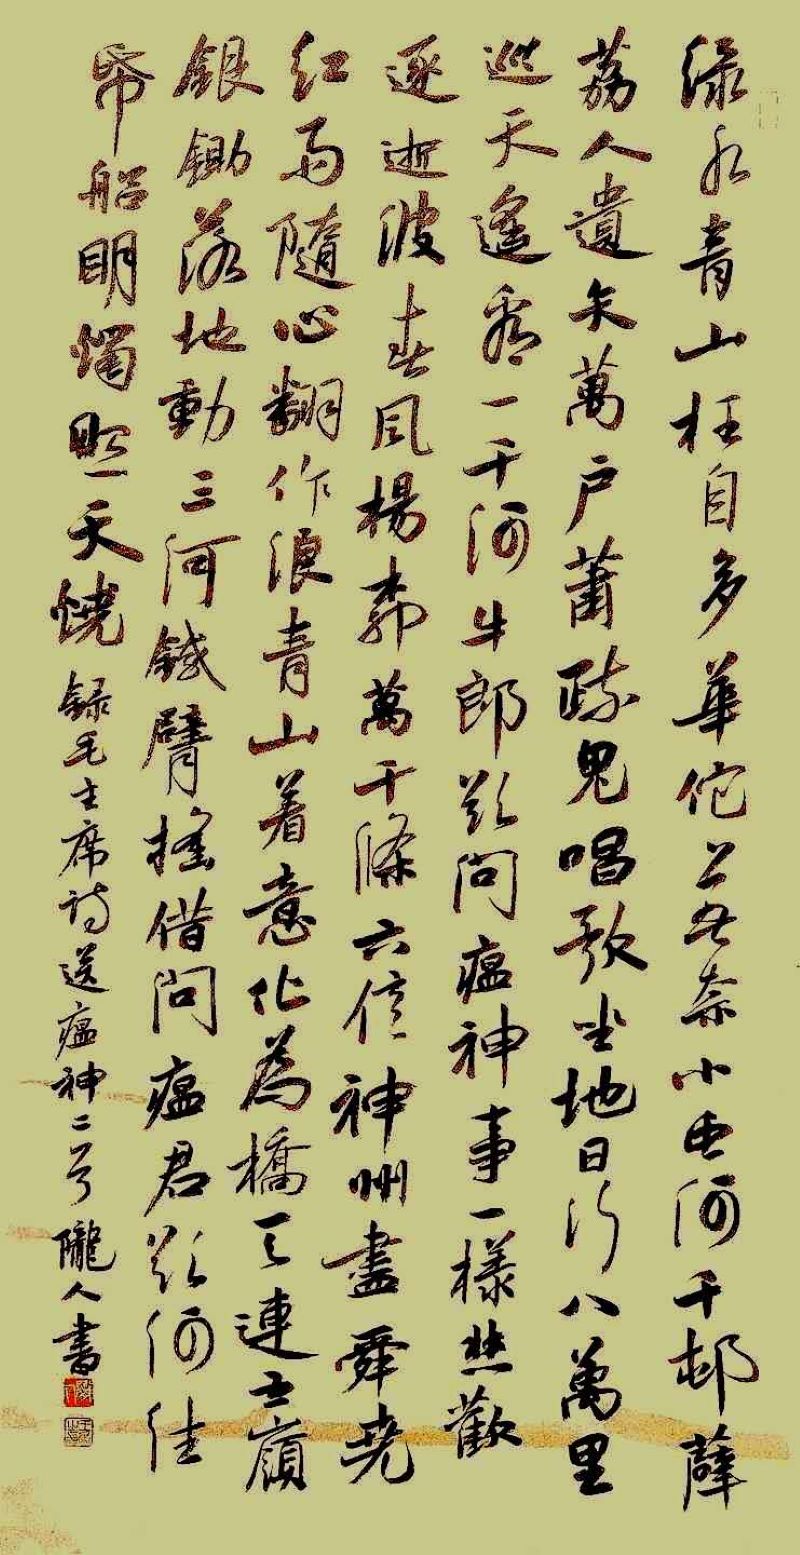 綠水青山枉自多華佗無奈小虫何千邨薜
荔人遺矢萬戶蕭疏鬼唱歌坐地日行八萬里
巡天遙看一千河牛郎欲問瘟神事一樣悲歡
逐逝波春風楊柳萬千條六億神州盡舜堯
紅雨隨心翻作浪青山着意化為橋天連五嶺
銀鋤落地動三河鐵臂搖借問瘟君欲何往
帋船明燭照天燒 錄毛主席詩送瘟神二首 隴人書